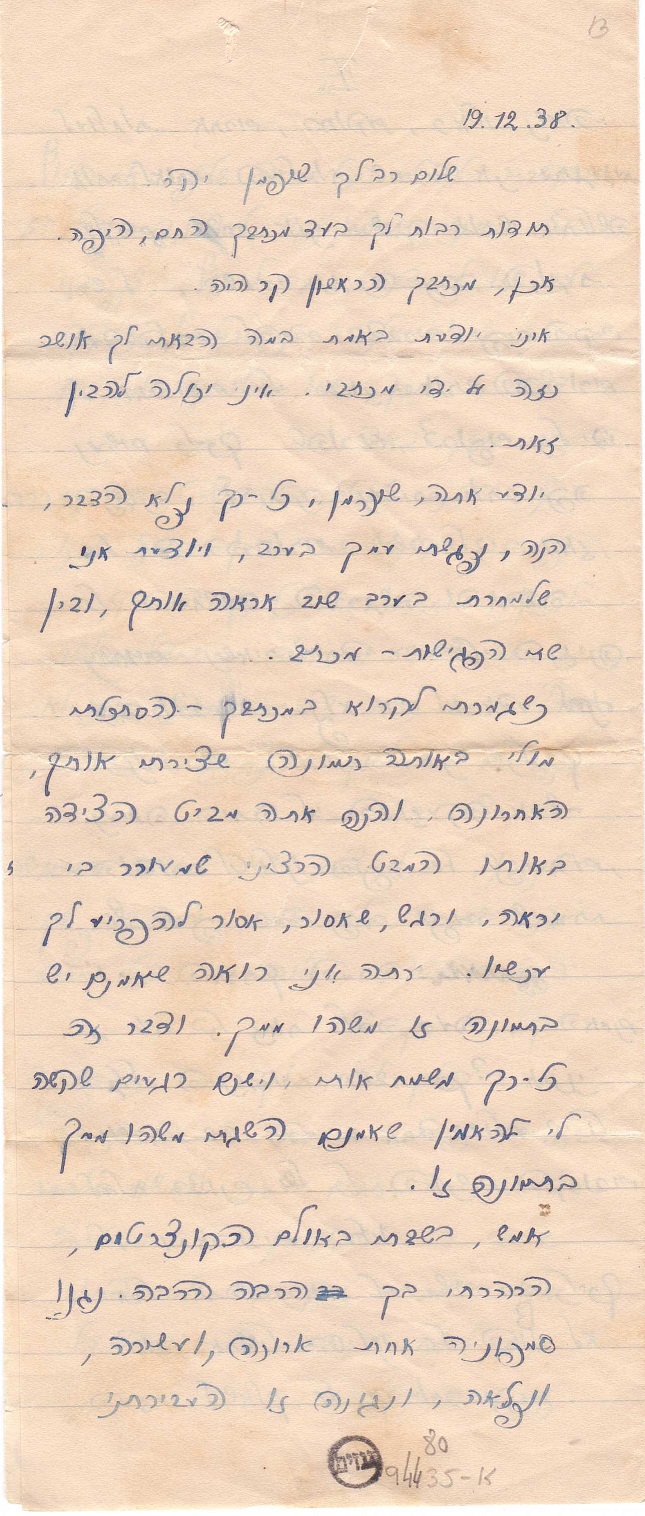 13
19.12.38.
שלום רב לך שופמן יקר.
תודות רבות לך בעד מכתבך החם, היפה.
אכן, מכתבך הראשון קר היה.
איני יודעת באמת במה הבאתי לך אושר
כזה על ידי מכתבי. איני יכולה להבין
זאת.
יודע אתה, שופמן, כל-כך נפלא הדבר,
הנה, נפגשתי עמך בערב, ויודעת אני
שלמחרת בערב שוב אראה אותך, ובין
שתי הפגישות - מכתב.
כשגמרתי לקרוא במכתבך - הסתכלתי
מולי באותה תמונה שציירתי אותך,
האחרונה, והנה אתה מביט הצידה
באותו המבט הרציני שמעורר בי
יראה, ורגש, שאסור, אסור להפריע לך
עכשיו. רואה אני שאמנם יש
בתמונה זו משהו ממך. ודבר זה
כל-כך משמח אותי, וישנם רגעים שקשה
לי להאמין שאמנם השגתי משהו ממך
בתמונה זו.
אמש, בשבתי באולם הקונצרטים,
הרהרתי בך הרבה הרבה. נגנו
סמפוניה אחת ארוכה, ועשירה,
ונפלאה, ונגינה זו העבירתני
גנזים
80
94435-א